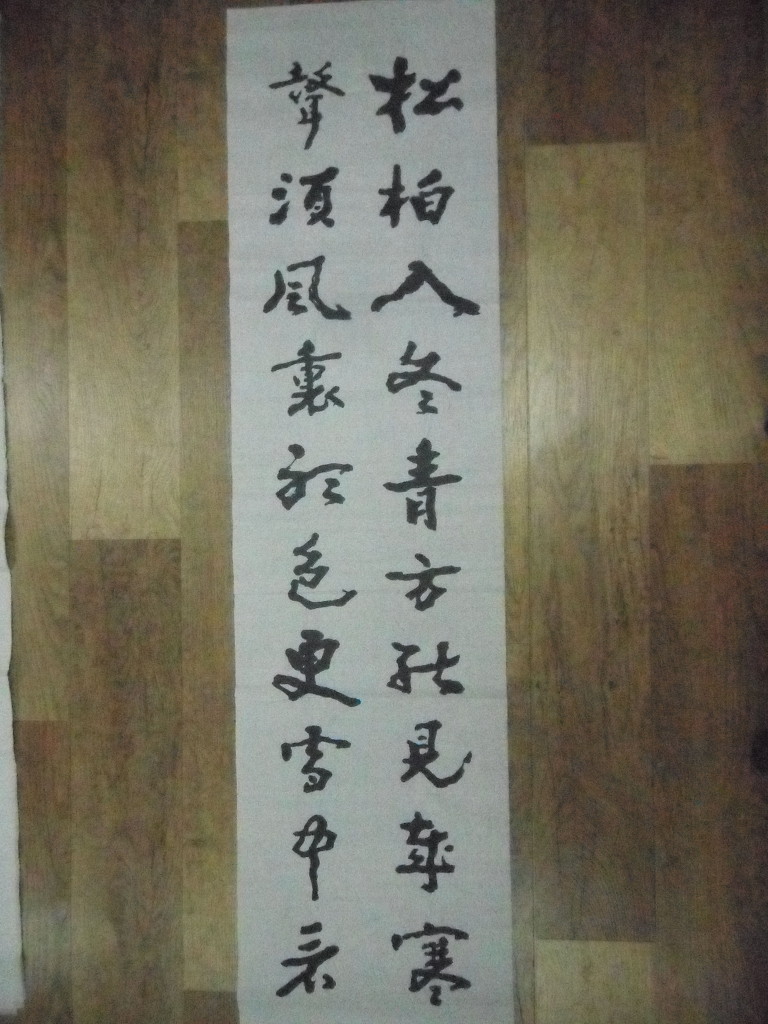 松柏入冬青方能見歲寒
聲須風裏聽色更雪中看